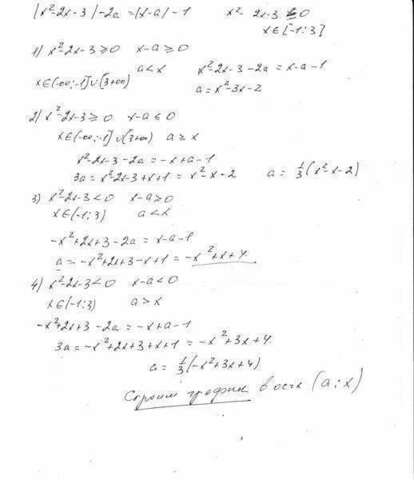 |x²-2x-3|-2a=|x-a|-1 x²-2x-3≤0
x∈[-1;3]
1) x²-2x-3≥0 x-a≥0
a<x x²-2x-3-2a=x-a-1
x∈(-∞;-1]∪[3+∞) a=x²-3x-2
2) x²-2x-3≥0 x-a≤0
x∈(-∞;-1]∪[3+∞) a≥x
x²-2x-3-2a=-x+a-1
3a=x²-2x-3+x+1=x²-x-2 a=1/3(x²-x-2)
3) x²-2x-3<0 x-a≥0
x∈(-1;3) a<x
-x²+2x+3-2a=x-a-1
a=-x²+2x+3-x+1=-x²+x+4
4) x²-2x-3<0 x-a<0
x∈(-1;3) a>x
-x²+2x+3-2a=-x+a-1
3a=-x²+2x+3+x+1=-x²+3x+4
a=1/3(-x²+3x+4)
Строим графики в осях (a;x)